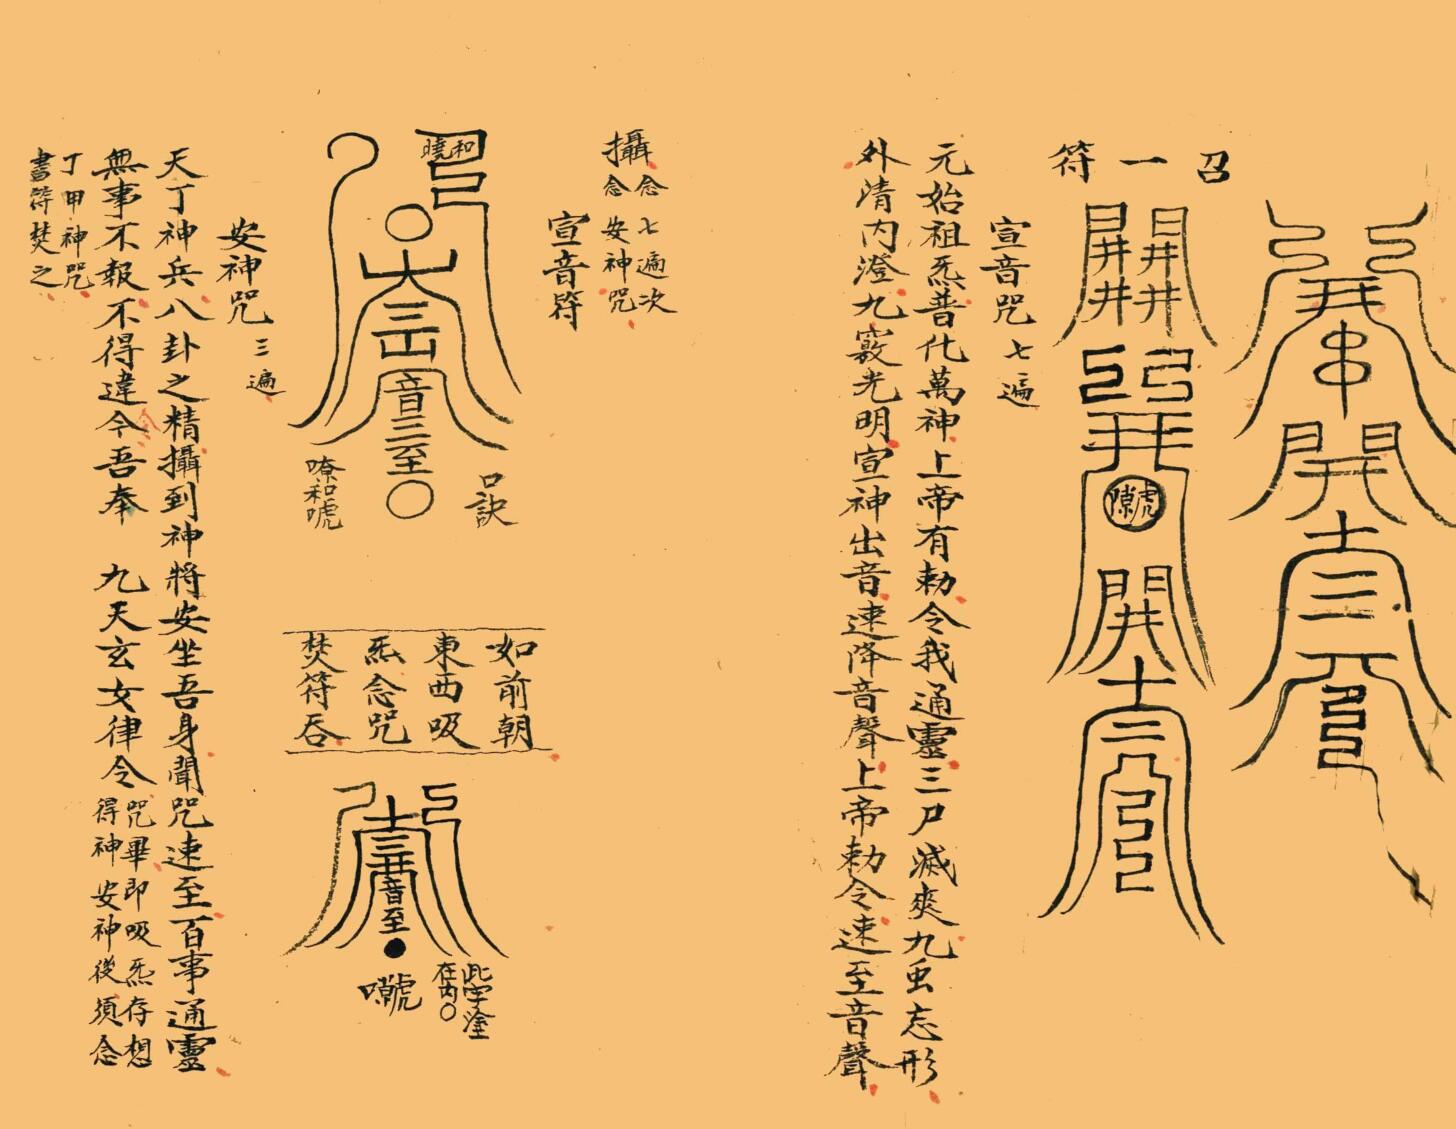 召一符
宣音咒 七遍
元始祖炁普化萬神上帝有勅令我通靈三尸滅爽九虫忘形
外清内澄九竅光明宣神出音速降音聲上帝勅令速至音聲
攝念七遍次
念安神咒
宣音符
和
曉
音三至
口訣
嘹和唬
如前朝
東西吸
炁念咒
焚符吞
音至
此字塗
在内〇
安神咒 三遍
天丁神兵八卦之精攝到神將安坐吾身聞咒速至百事通靈
無事不報不得違令吾奉 九天玄女律令
咒畢即吸炁存想
得神安神後須念
丁甲神咒
書符焚之